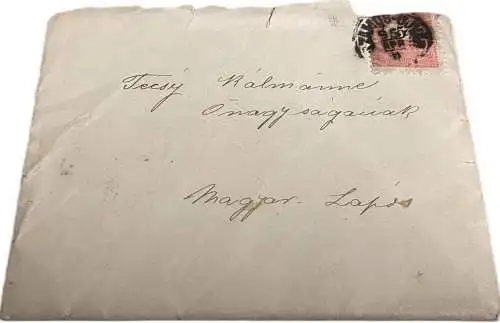 Tecsÿ Kálmánné
Őnagyságának
Magyar-Lápos